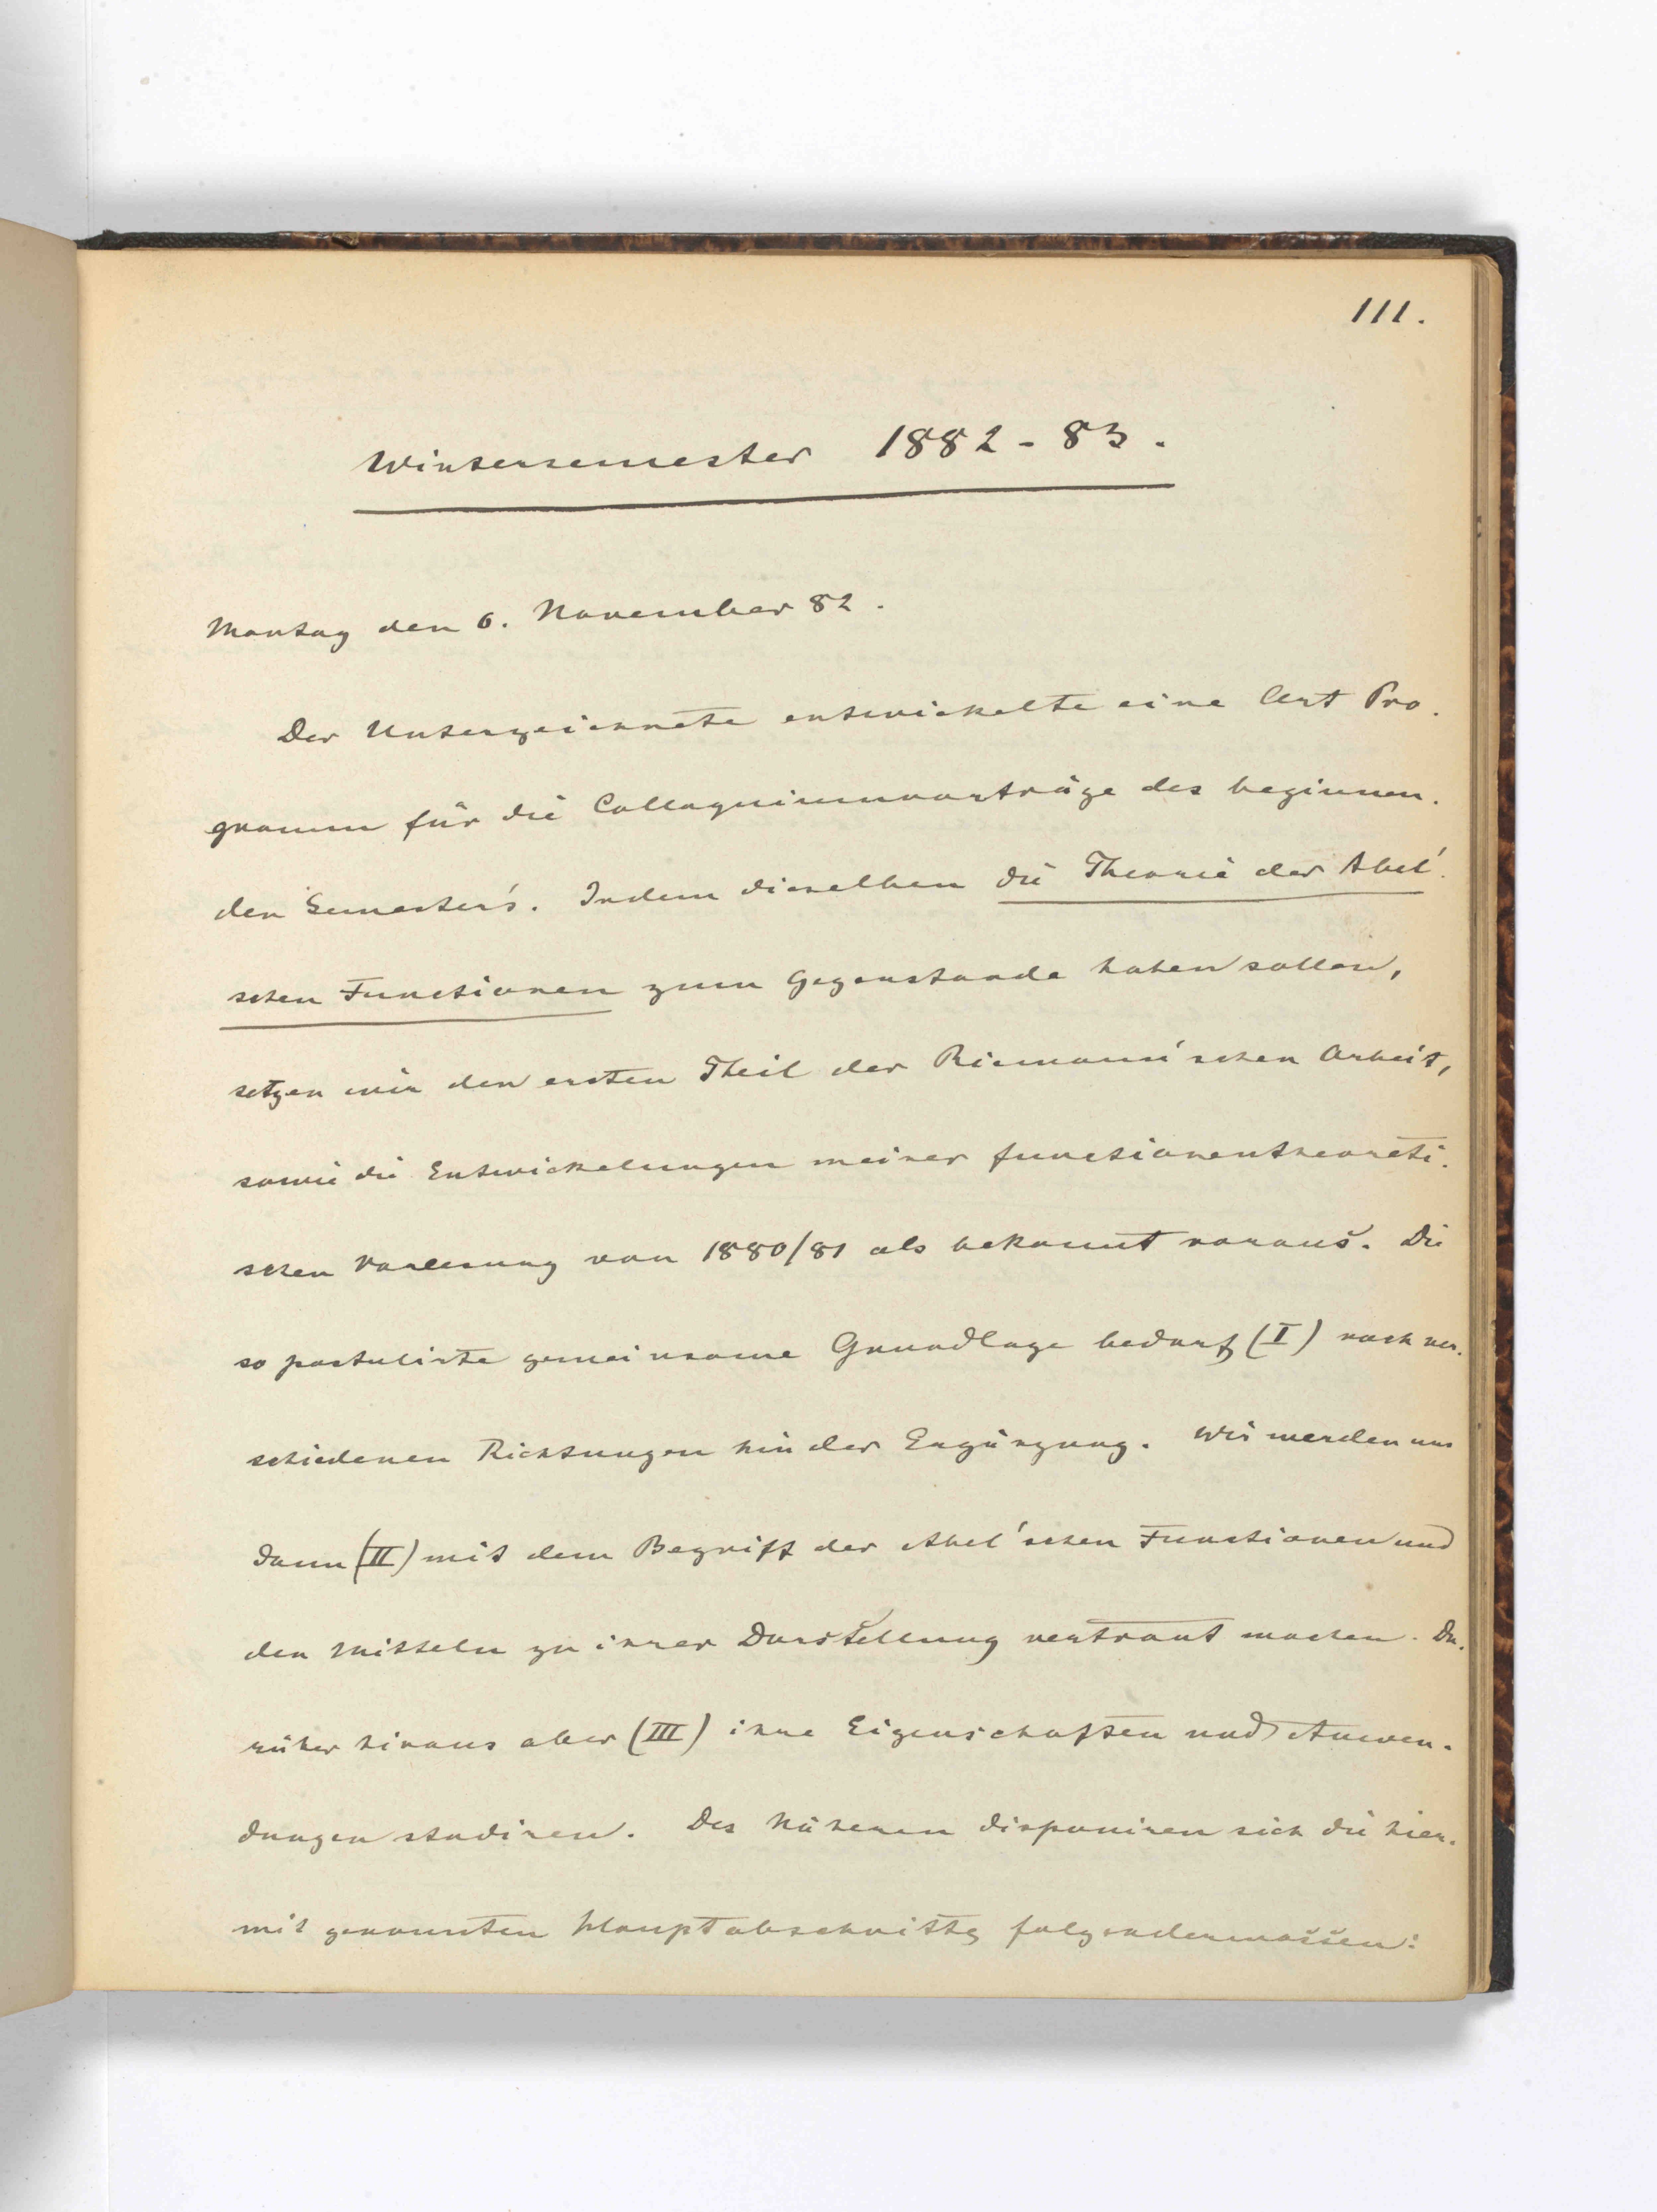 111.
Wintersemester 1882-83.
Montag den 6. November 82.
Der Unterzeichnete entwickelte eine Art Pro-
gramm für die Colloquiumvorträge des beginnen-
den Semesters. Indem dieselben die Theorie der Abel'-
schen Functionen zum Gegenstande haben sollen,
setzen wir den ersten Theil der Riemann'schen Arbeit,
sowie die Entwickelungen meiner functionentheoreti-
schen Vorlesung von 1880/81 als bekannt voraus. Die
so postulirte gemeinsame Grundlage bedarf (I) nach ver-
schiedenen Richtungen hin der Ergänzung. Wir werden uns
dann (II) mit dem Begriff der Abel'schen Functionen und
den Mitteln zu ihrer Darstellung vertraut machen. Da-
rüber hinaus aber (III) ihre Eigenschaften und Anwen-
dungen studiren. Des Näheren disponiren sich die hier-
mit genannten Hauptabschnitte folgendermassen: